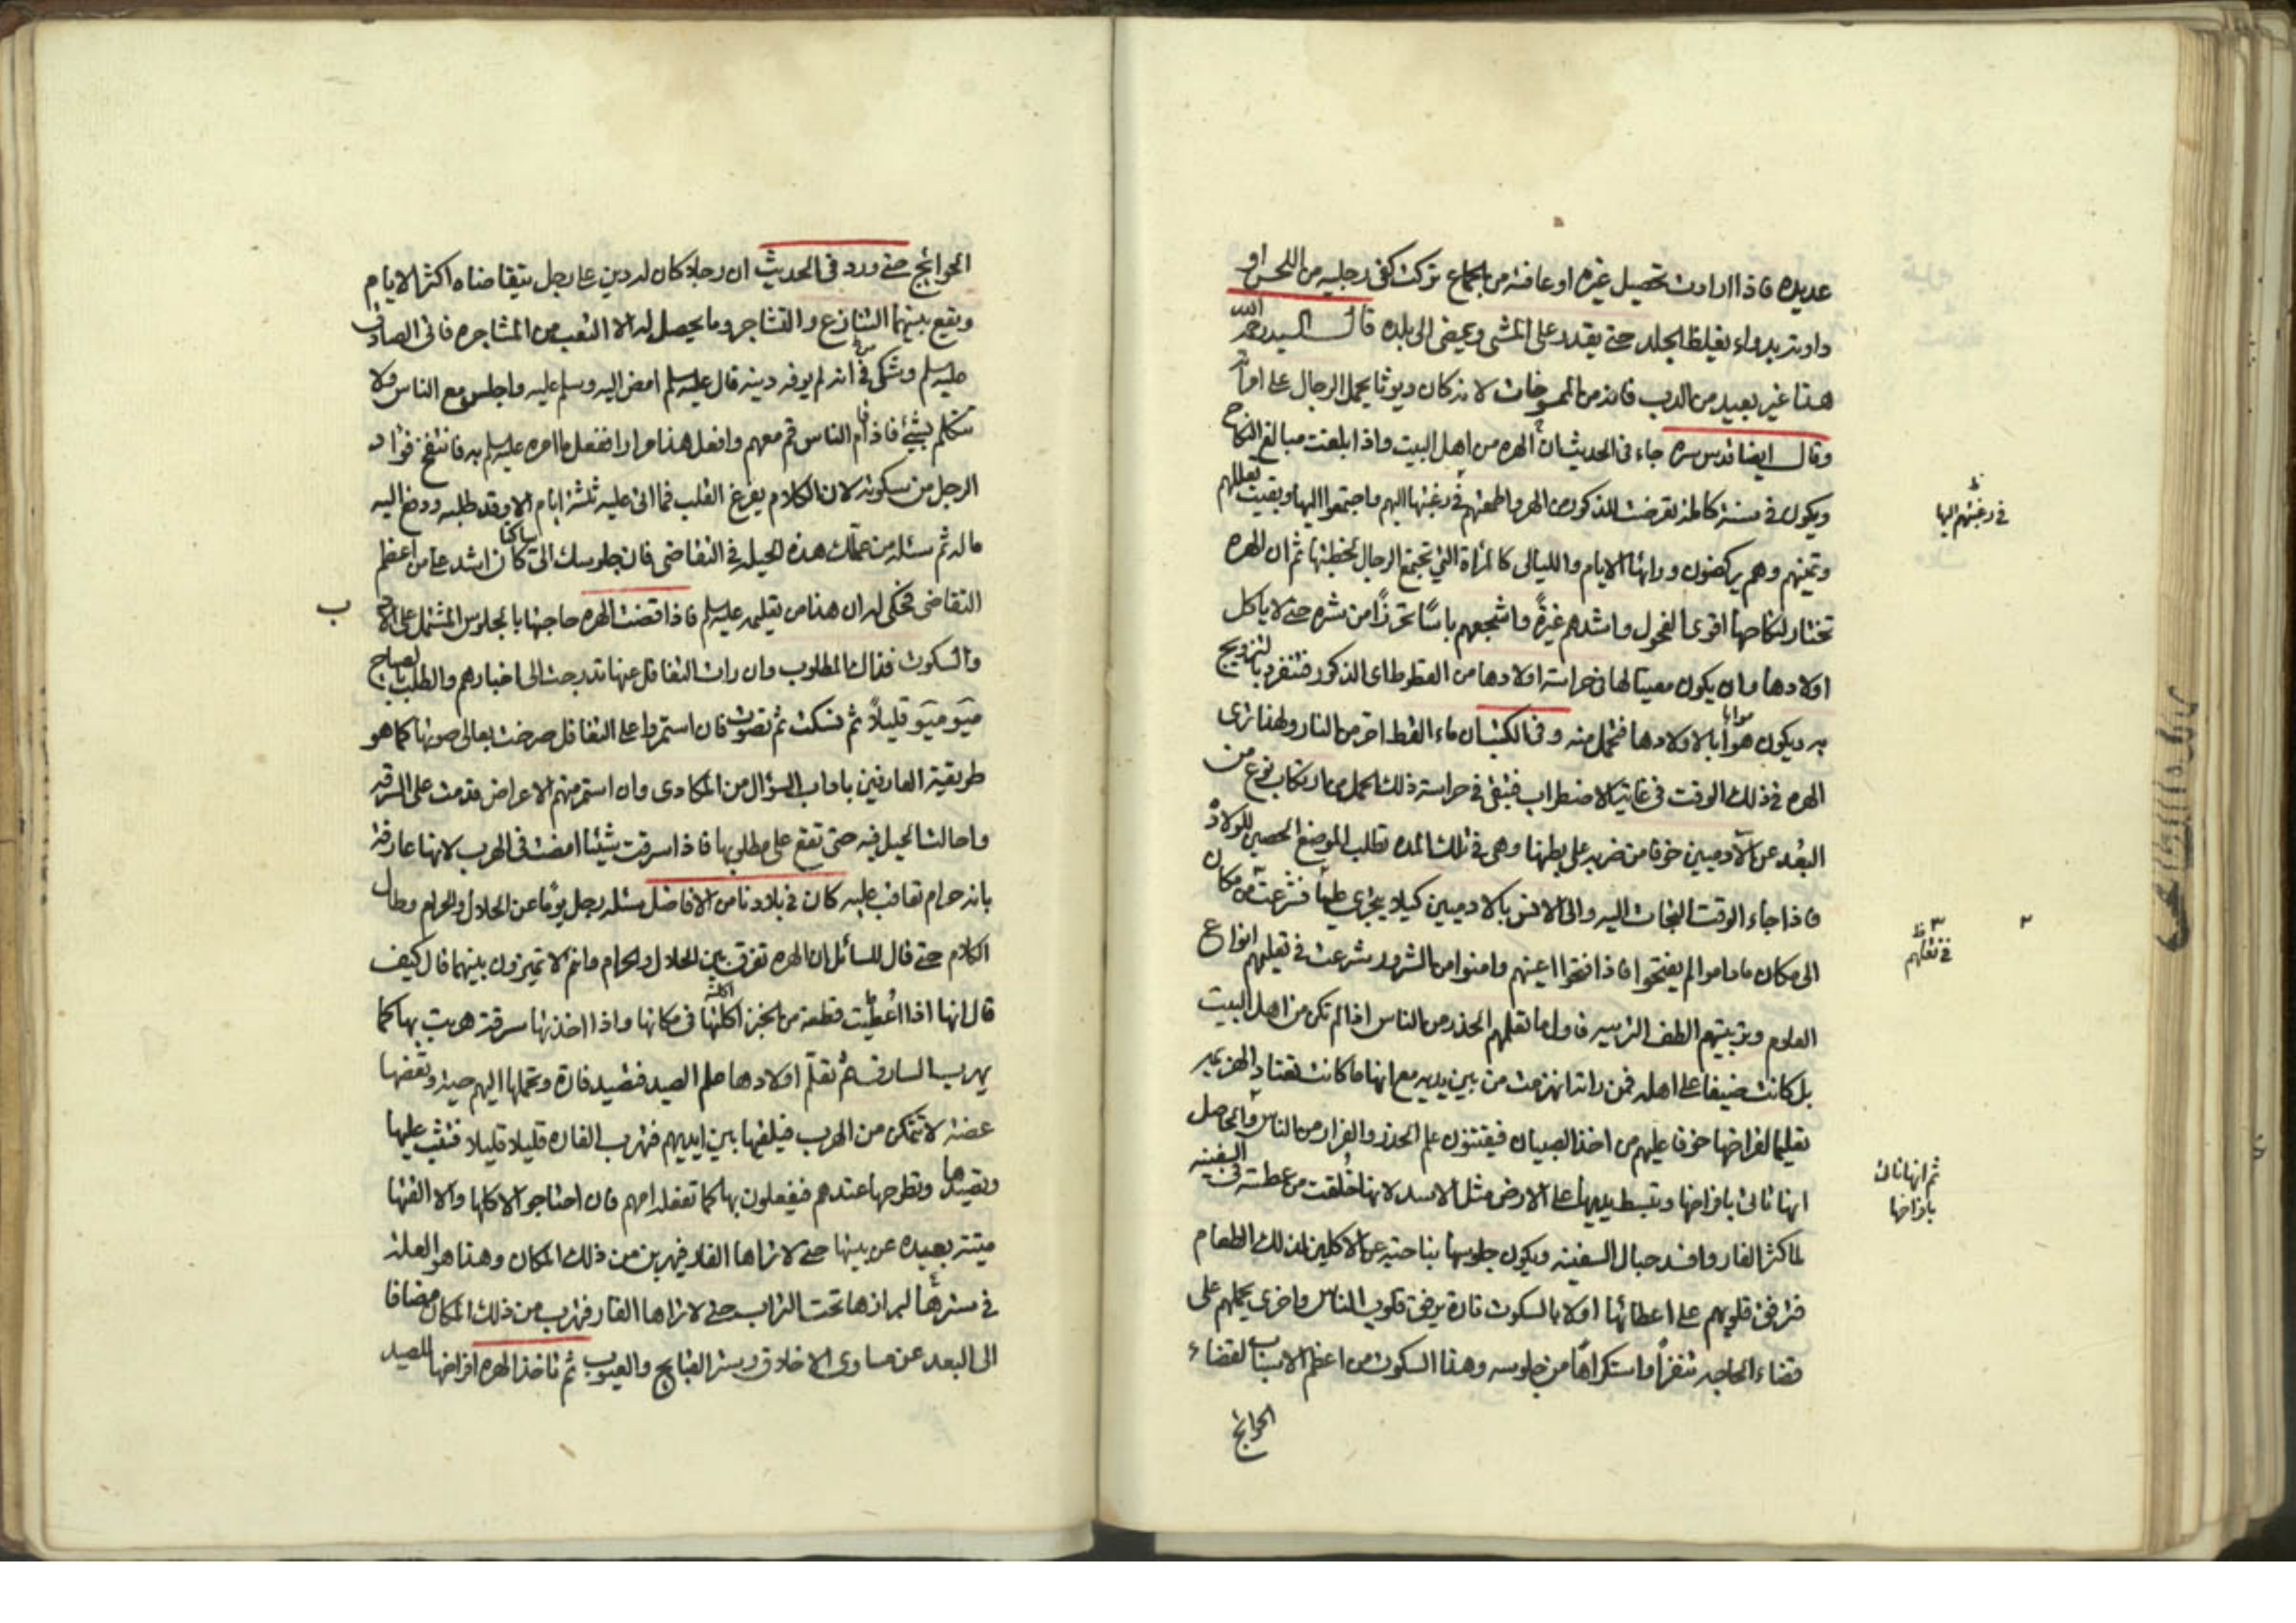 عديده فاذا ارادت تحصيل غيره او عافته من الجماع تركت كفى رجليه من اللحس او
داوته بدواء يغلظ الجلد حتى يقدر على المشى ويمضى الى بلده قال السيد رحمه الله
هذا غير بعيد من الدب فانه من المسوخات لانه كان ديوثا يحمل الرجال على امرأته
وقال ايضا قدس سره جاء فى الحديث ان الهره من اهل البيت واذا بلغت مبالغ النكاح
ويكون فى سنة كاملة تعرضت للذكور من الهر واطمعتهم فى رغبتها اليهم واجتمعوا اليها وبقيت تعللهم
وتمنيهم وهم يركضون ورائها الايام والليالى كالمرأة التى تجتمع الرجال لخطبتها ثم ان الهره
تختار لنكاحها اقوى الفحول واشدهم غيرةً واشجعهم باسًا تحرزًا من شره حتى لا ياكل
اولادها وان يكون معينا لها فى حراسة اولادها من القطوط اى الذكور فتنفرد بالتزويج
به ويكون هو أبا لاولادها فتحمل منه وفى الكتب ان ماء القط احر من النار ولهذا ترى
الهره فى ذلك الوقت فى غاية الاضطراب فتبقى فى حراسة ذلك الحمل من ارتكاب نوع من
البُعد عن الآدميين خوفا من ضربه على بطنها وهى فى تلك المده تطلب الموضع الحصين للولادة
فاذا جاء الوقت التجات اليه والى الانس بالادميين كيلا يجرى عليها فشرعت من مكان
الى مكان ماداموا لم يفتحوا فاذا فتحوا اعينهم وامنوا من الشرور شرعت فى تعليمهم انواع
العلوم وتربيتهم الطف التربيه فاول ما تعلمهم الحذر من الناس اذا لم تكن من اهل البيت
بل كانت ضيفا على اهله فمن راته انهزمت من بين يديه مع انها ما كانت تعتاد الهزيمه
تعليما لفراخها خوفا عليهم من اخذ الصبيان فيقتنون علم الحذر والفرار من الناس والحاصل
انها تاتى بافراخها وتبسط يديها على الارض مثل الاسد لانها خُلقت من عطسته فى السفينه
لما كثر الفار وافسد حبال السفينه ويكون جلوسها بناحيه عن الاكلين لذلك الطعام
فترقق قلوبهم على اعطائها اولا بالسكوت فتارة يرقق قلوب الناس واخرى يحملهم على
قضاء الحاجه تنفرًا واستكراهًا من جلوسه وهذا السكوت من اعظم الاسباب لقضاء
الحوائج
فى رغبتهم اليها
فى نقلهم
ثم انها تاتى
بافراخها
الحوائج حتى ورد فى الحديث ان رجلا كان له دين على رجل يتقاضاه اكثر الايام
ويقع بينهما التنازع والتشاجر وما يحصل له الا التعب من المشاجره فاتى الصادق
عليه السلم وشكى انه لم يوفه دينه قال عليه السلم امض اليه وسلم عليه واجلس مع الناس ولا
تتكلم بشئ فاذا قام الناس قم معهم وافعل هذا مرارا ففعل ما امره عليه السلم به فانتفخ فؤاد
الرجل من سكوته لان الكلام يفرغ القلب فما اتى عليه ثلثة ايام الا وقد طلبه ودفع اليه
ماله ثم سئله من علمك هذه الحيله فى التقاضى فان جلوسك الىّ ساكتا كان اشد على من اعظم
التقاضى فحكى له ان هذا من تعليمه عليه السلم فاذا قضت الهره حاجتها بالجلوس المشتمل على الادب
والسكوت فذاك المطلوب وان رات التغافل عنها تدرجت الى اخبارهم والطلب بصياح
ميَو ميَو قليلاً ثم تسكت ثم تصوت فان استمروا على التغافل صرخت بعالى صوتها كما هو
طريقة العارفين باداب السؤال من المكادى وان استمر منهم الاعراض قدمت على السرقه
واحالت الحيل فيه حتى تقع على مطلوبها فاذا سرقت شيئا امضت فى الهرب لانها عارفة
بانه حرام تعاقب عليه كان فى بلادنا من الافاضل سئله رجل يومًا عن الحلال والحرام وطال
الكلام حتى قال للسائل ان الهره تفرق بين الحلال والحرام وانتم لا تميزون بينهما قال كيف
قال انها اذا اُعطيت قطعة من الخبز اكلتها فى مكانها واذا اخذتها سرقة هربت بها كما
يهرب السارق ثم تعلّم اولادها علم الصيد فتصيد فارة وتحملها اليهم حية وتعضها
عضة لا تتمكن من الهرب فيلقيها بين ايديهم فتهرب الفاره قليلا قليلا فتثب عليها
وتصيدها وتطرحها عندهم فيفعلون بها كما تفعله امهم فان احتاجوا لاكلها والا القتها
ميتة بعيده عن بيتها حتى لا تراها الفار فيهربن من ذلك المكان وهذا هو العلة
فى سترها لبرازها تحت التراب حتى لا تراها الفار فتهرب من ذلك المكان مضافا
الى البعد عن مساوى الاخلاق وستر القبائح والعيوب ثم تاخذ الهره افراخها للصيد